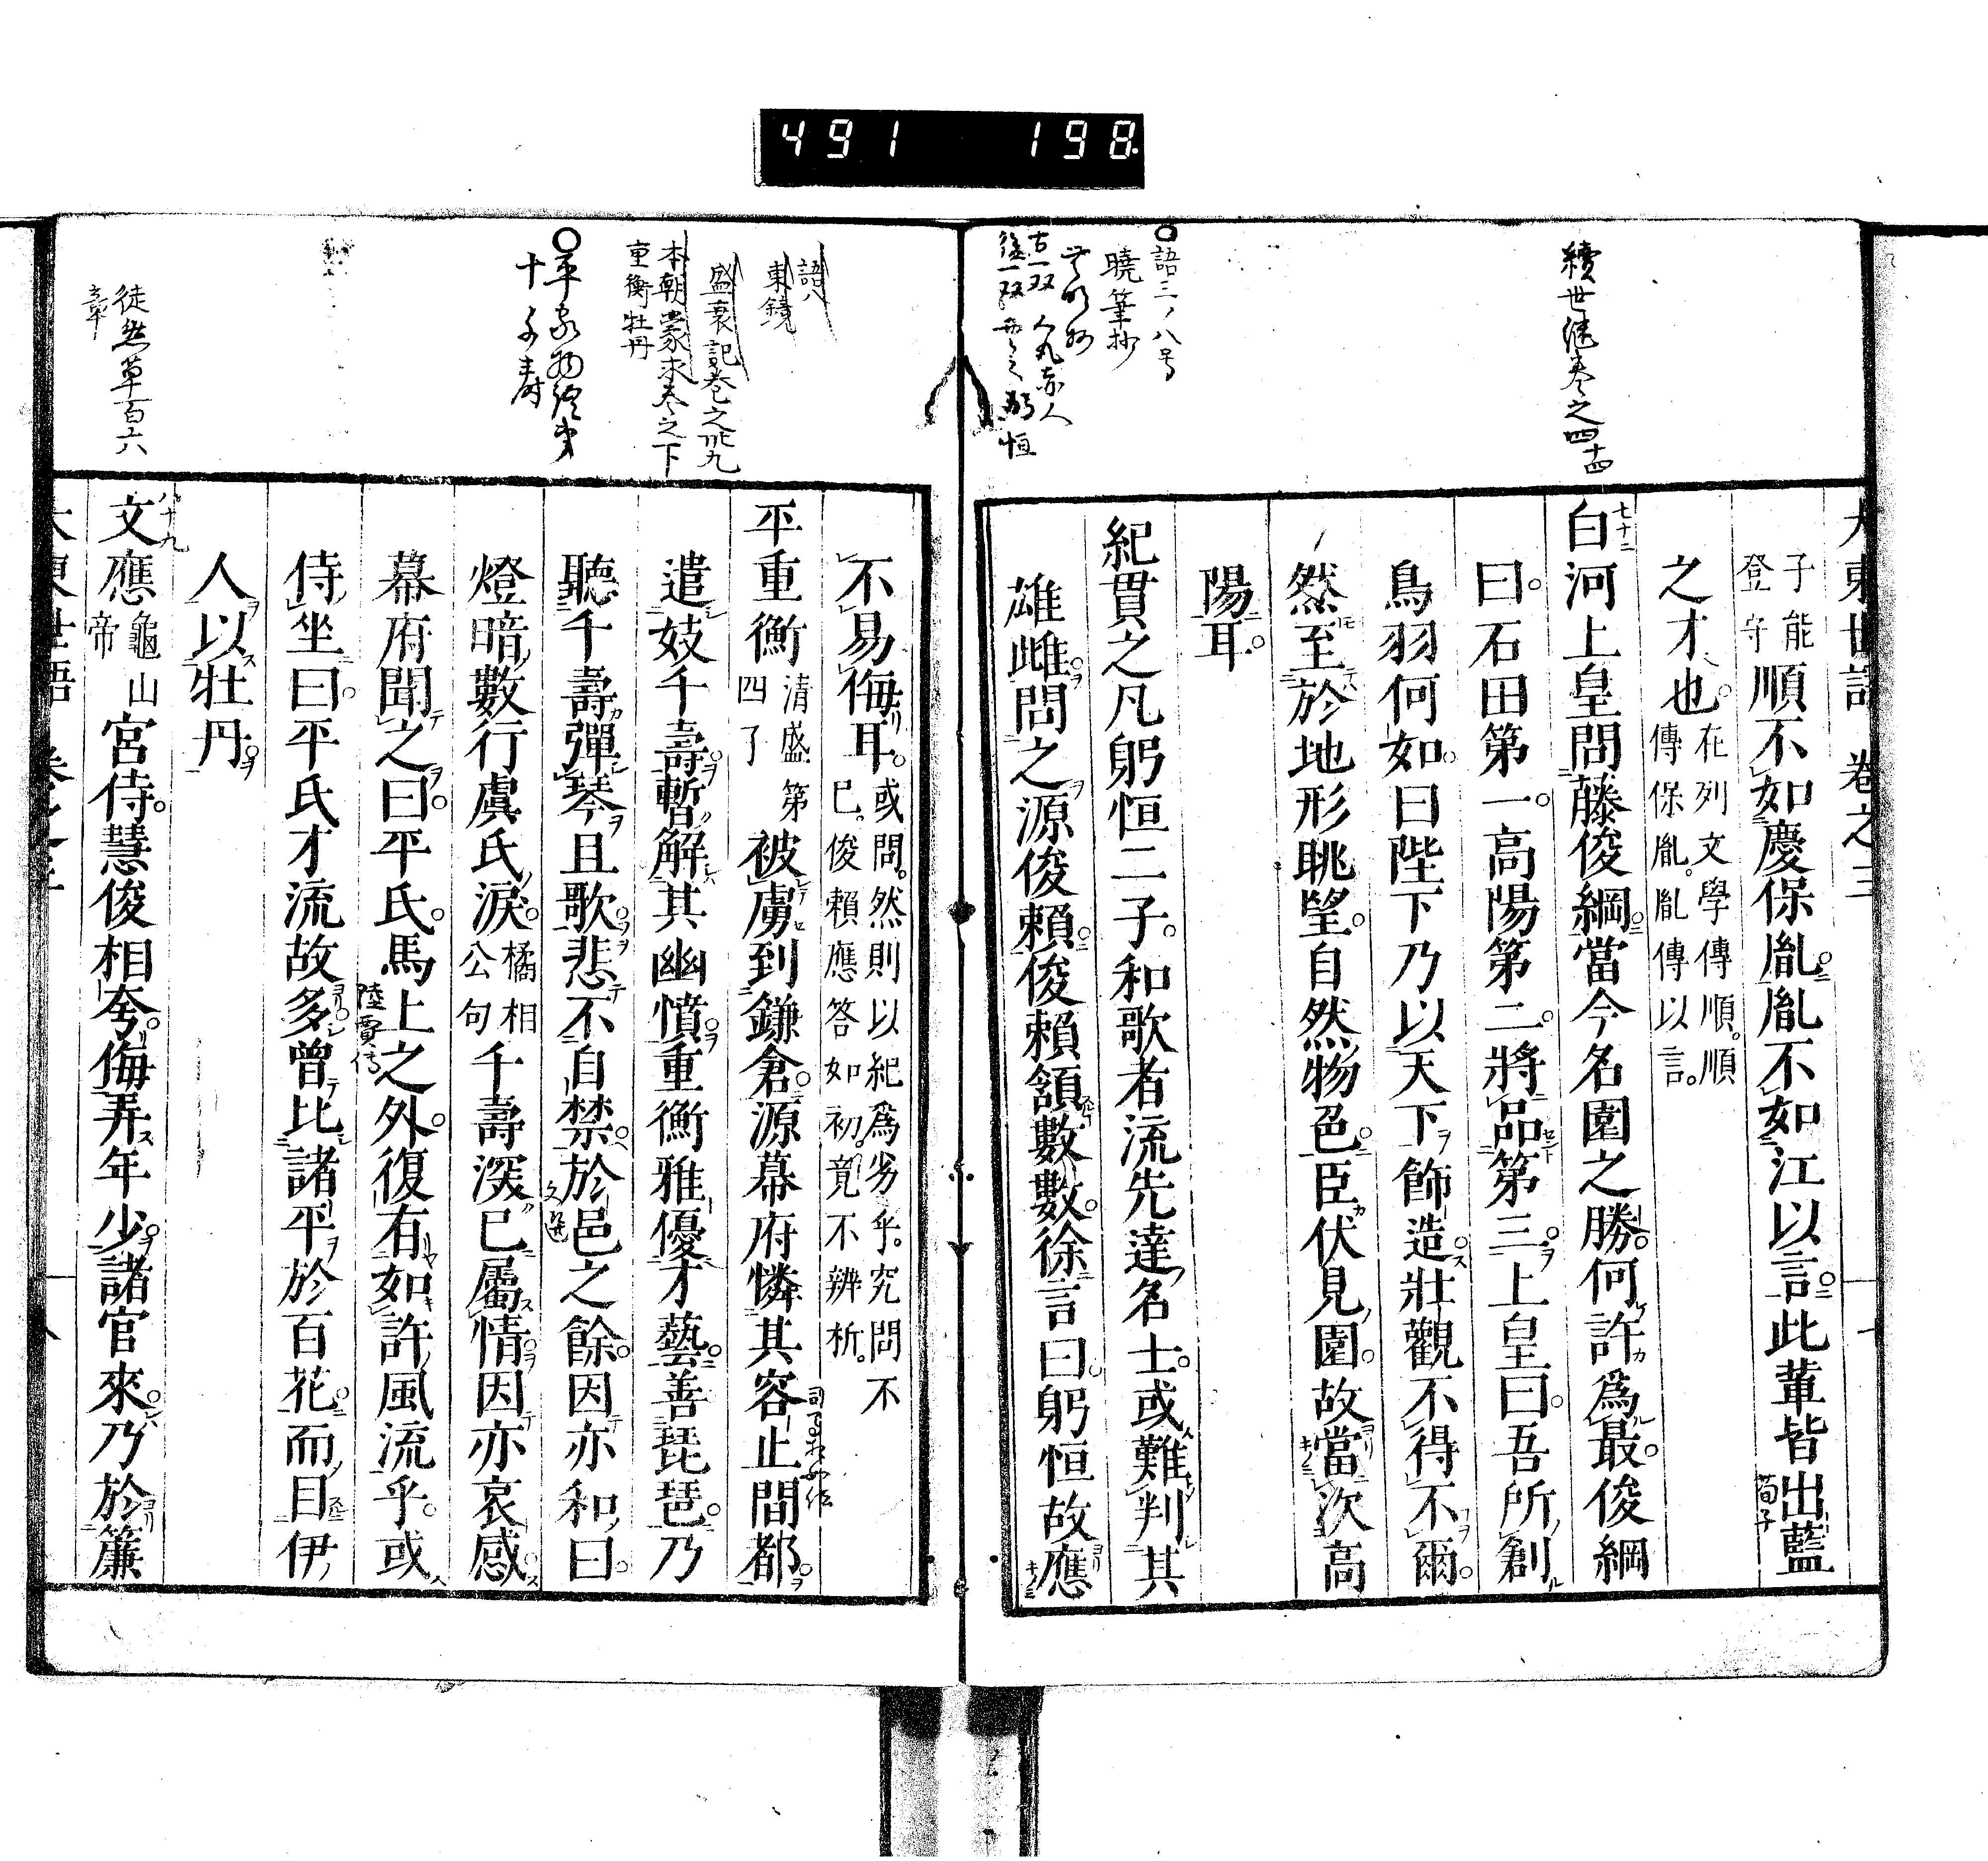 491 198
續世継巻之四十四
語三ノ八号
暁筆抄
古一双 人丸赤人
大東世語 巻之三
子能
登守
順不如慶保胤胤不如江以言此輩皆出藍
荀子
之才也
在列文學傳順順
傳保胤胤傳以言
七十二
白河上皇問藤俊綱當今名園之勝何許爲最俊綱
曰石田第一高陽第二將品第三上皇曰吾所創
鳥羽何如曰陛下乃以天下飾造壯觀不得不爾
然至於地形眺望自然物色臣伏見園故當次高
陽耳
紀貫之凡躬恒二子和歌者流先達名士或難判其
雄雌問之源俊頼俊頼頷數數徐言曰躬恒故應
語八
東鏡
盛衰記巻之卅九
本朝蒙求巻之下
重衡牡丹
平家物語第
十千寿
徒然草百六
章
不易侮耳
或問然則以紀爲劣乎究問不
已俊頼應答如初竟不辨析
平重衡
清盛第
四子
被虜到鎌倉源幕府憐其容止間都
遣妓千壽暫解其幽憤重衡雅優才藝善琵琶乃
聽千壽彈琴且歌悲不自禁於邑之餘因亦和曰
文選
燈暗數行虞氏涙
橘相
公句
千壽深已屬情因亦哀感
幕府聞之曰平氏馬上之外復有如許風流乎或
陸賈傳
侍坐曰平氏才流故多曾比諸平於百花而目伊
人以牡丹
八十九
文應
龜山
帝
宮侍慧俊相夸侮弄年少諸官來乃於簾
大東世語 巻之三